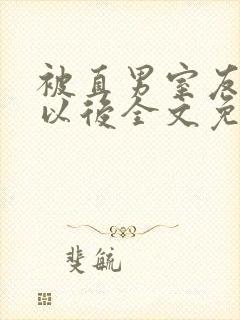 被直男室友
以後全文免
斐毓